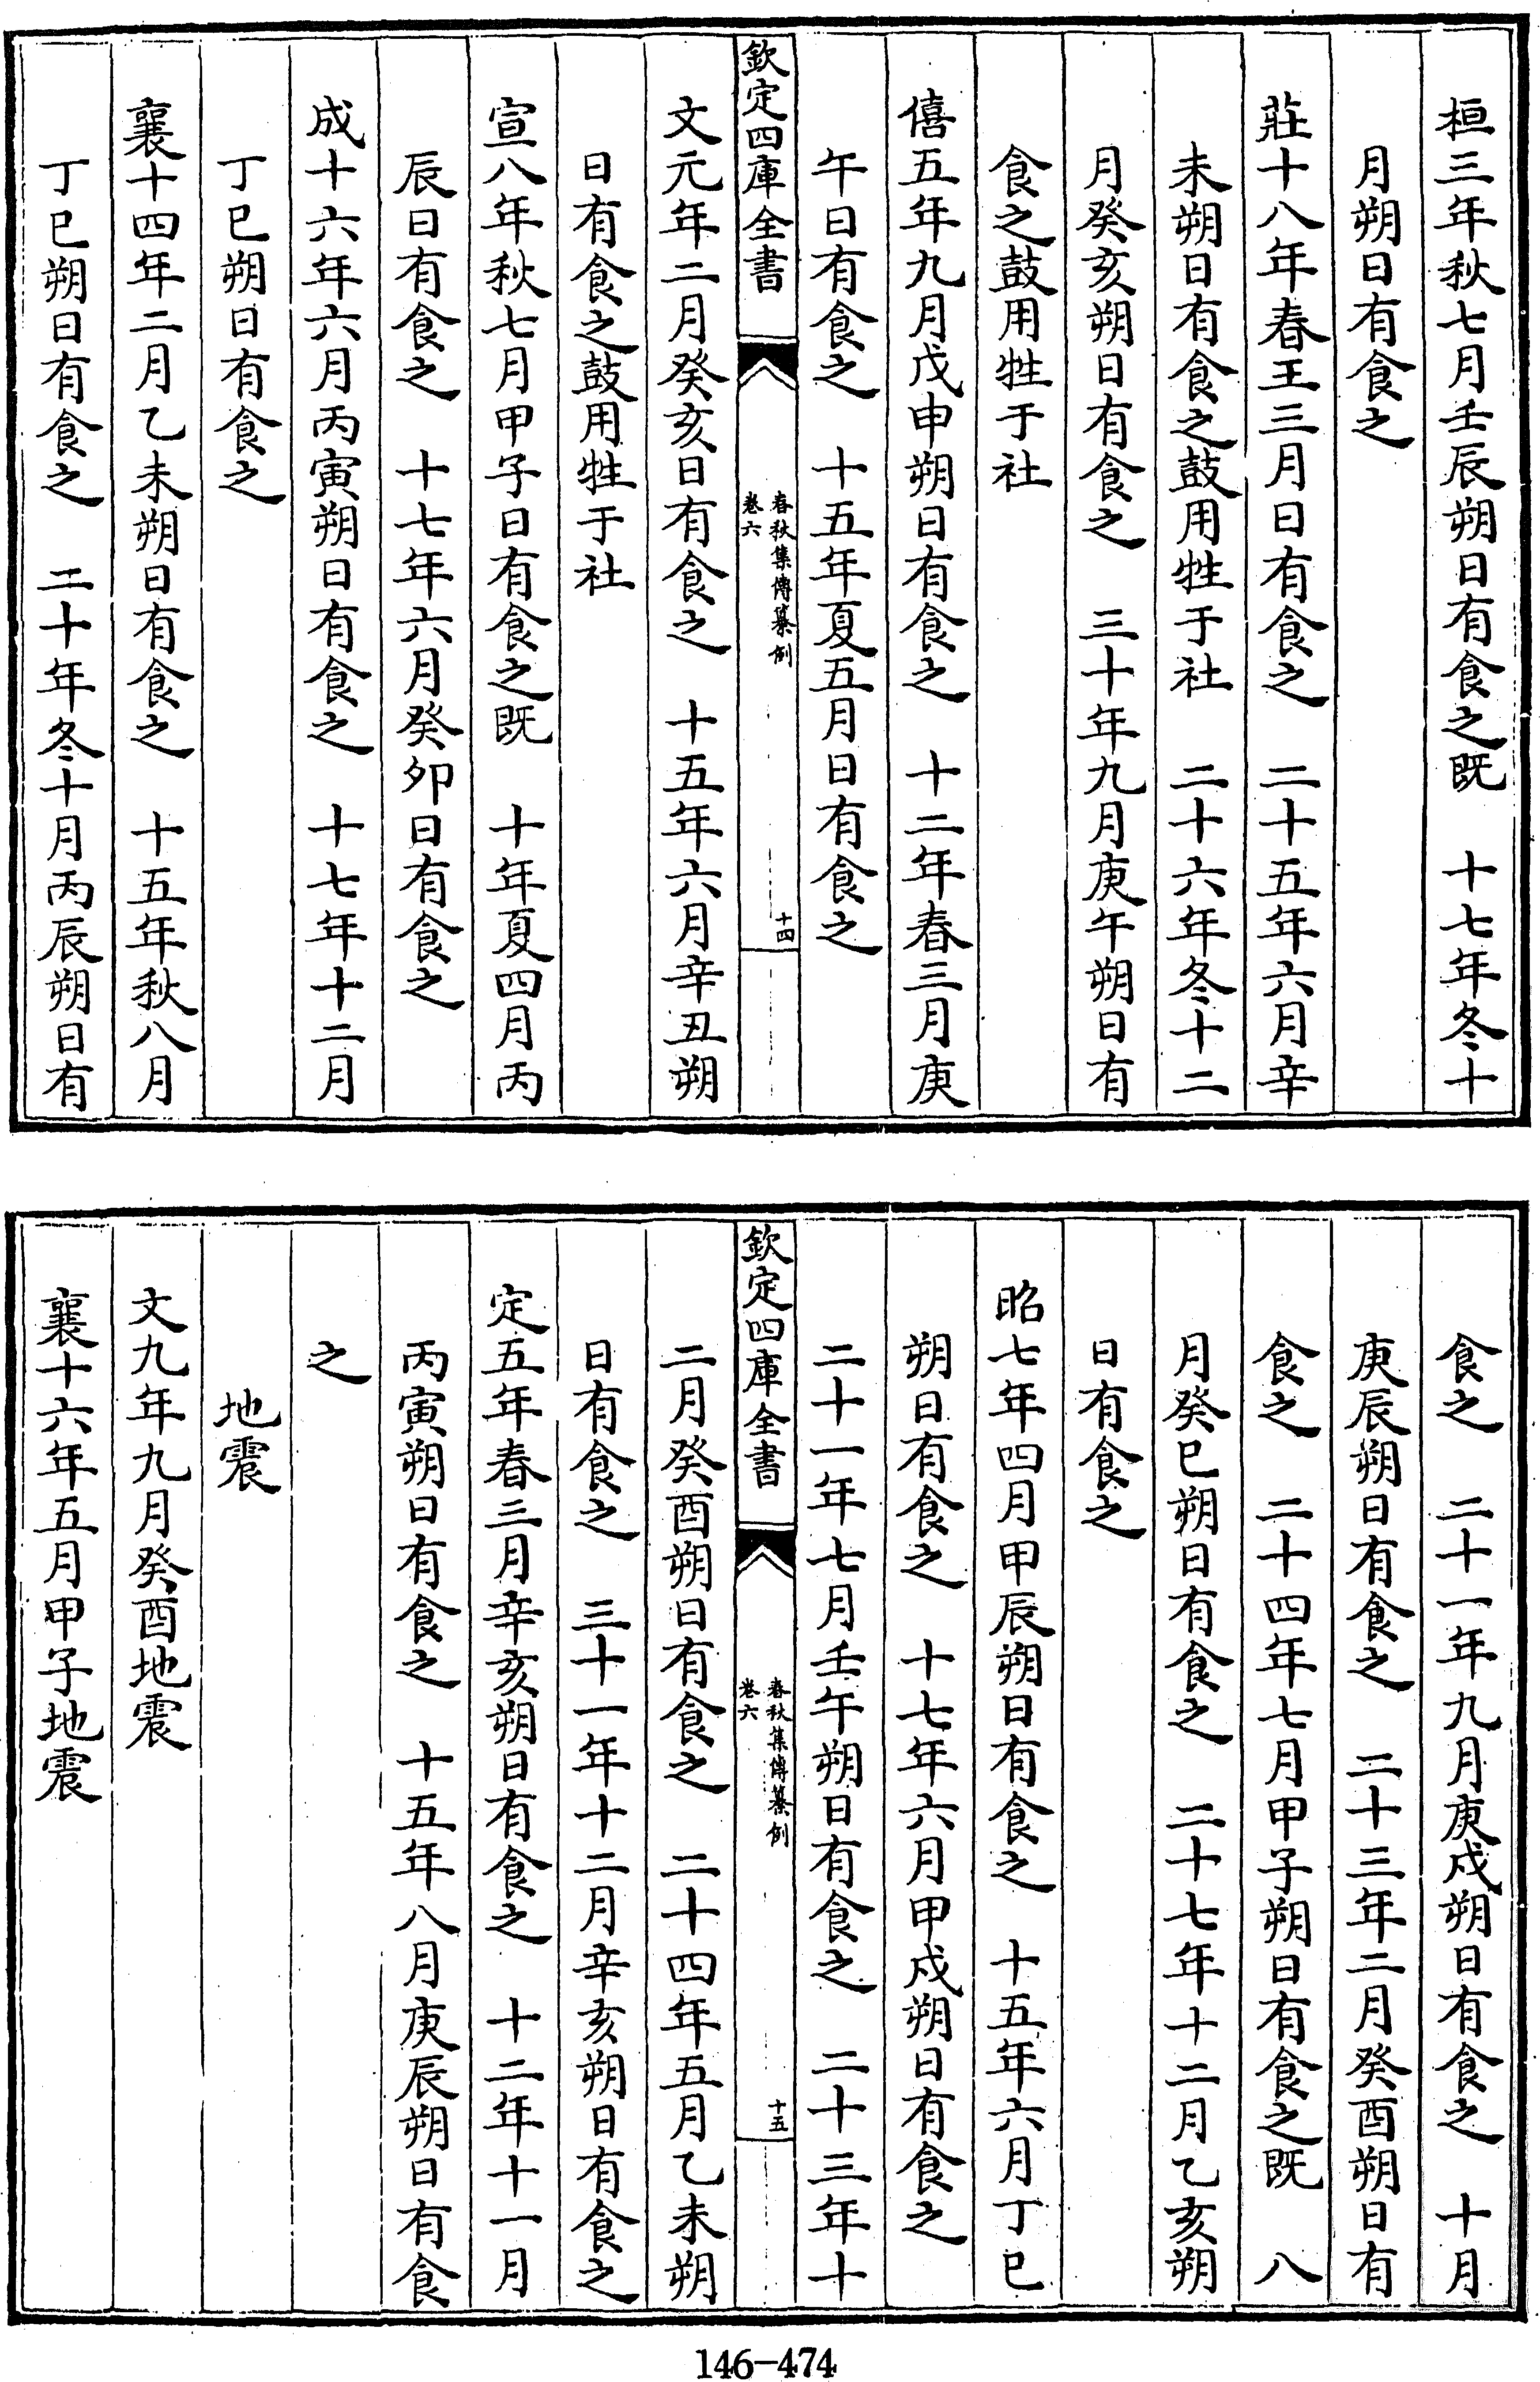 桓三年秋七月壬辰朔日有食之既　十七年冬十
月朔日有食之
莊十八年春王三月日有食之　二十五年六月辛
未朔日有食之鼓用牲于社　二十六年冬十二
月癸亥朔日有食之　三十年九月庚午朔日有
食之鼓用牲于社
僖五年九月戊申朔日有食之　十二年春三月庚
午日有食之　十五年夏五月日有食之
欽定四庫全書
春秋集傳纂例
卷六
十四
文元年二月癸亥日有食之　十五年六月辛丑朔
日有食之鼓用牲于社
宣八年秋七月甲子日有食之既　十年夏四月丙
辰日有食之　十七年六月癸卯日有食之
成十六年六月丙寅朔日有食之　十七年十二月
丁巳朔日有食之
襄十四年二月乙未朔日有食之　十五年秋八月
丁巳朔日有食之　二十年冬十月丙辰朔日有
食之　二十一年九月庚戍朔日有食之　十月
庚辰朔日有食之　二十三年二月癸酉朔日有
食之　二十四年七月甲子朔日有食之既　八
月癸巳朔日有食之　二十七年十二月乙亥朔
日有食之
昭七年四月甲辰朔日有食之　十五年六月丁巳
朔日有食之　十七年六月甲戍朔日有食之
二十一年七月壬午朔日有食之　二十三年十
欽定四庫全書
春秋集傳纂例
卷六
十五
二月癸酉朔日有食之　二十四年五月乙未朔
日有食之　三十一年十二月辛亥朔日有食之
定五年春三月辛亥朔日有食之　十二年十一月
丙寅朔日有食之　十五年八月庚辰朔日有食
之
地震
文九年九月癸酉地震
襄十六年五月甲子地震
146-474